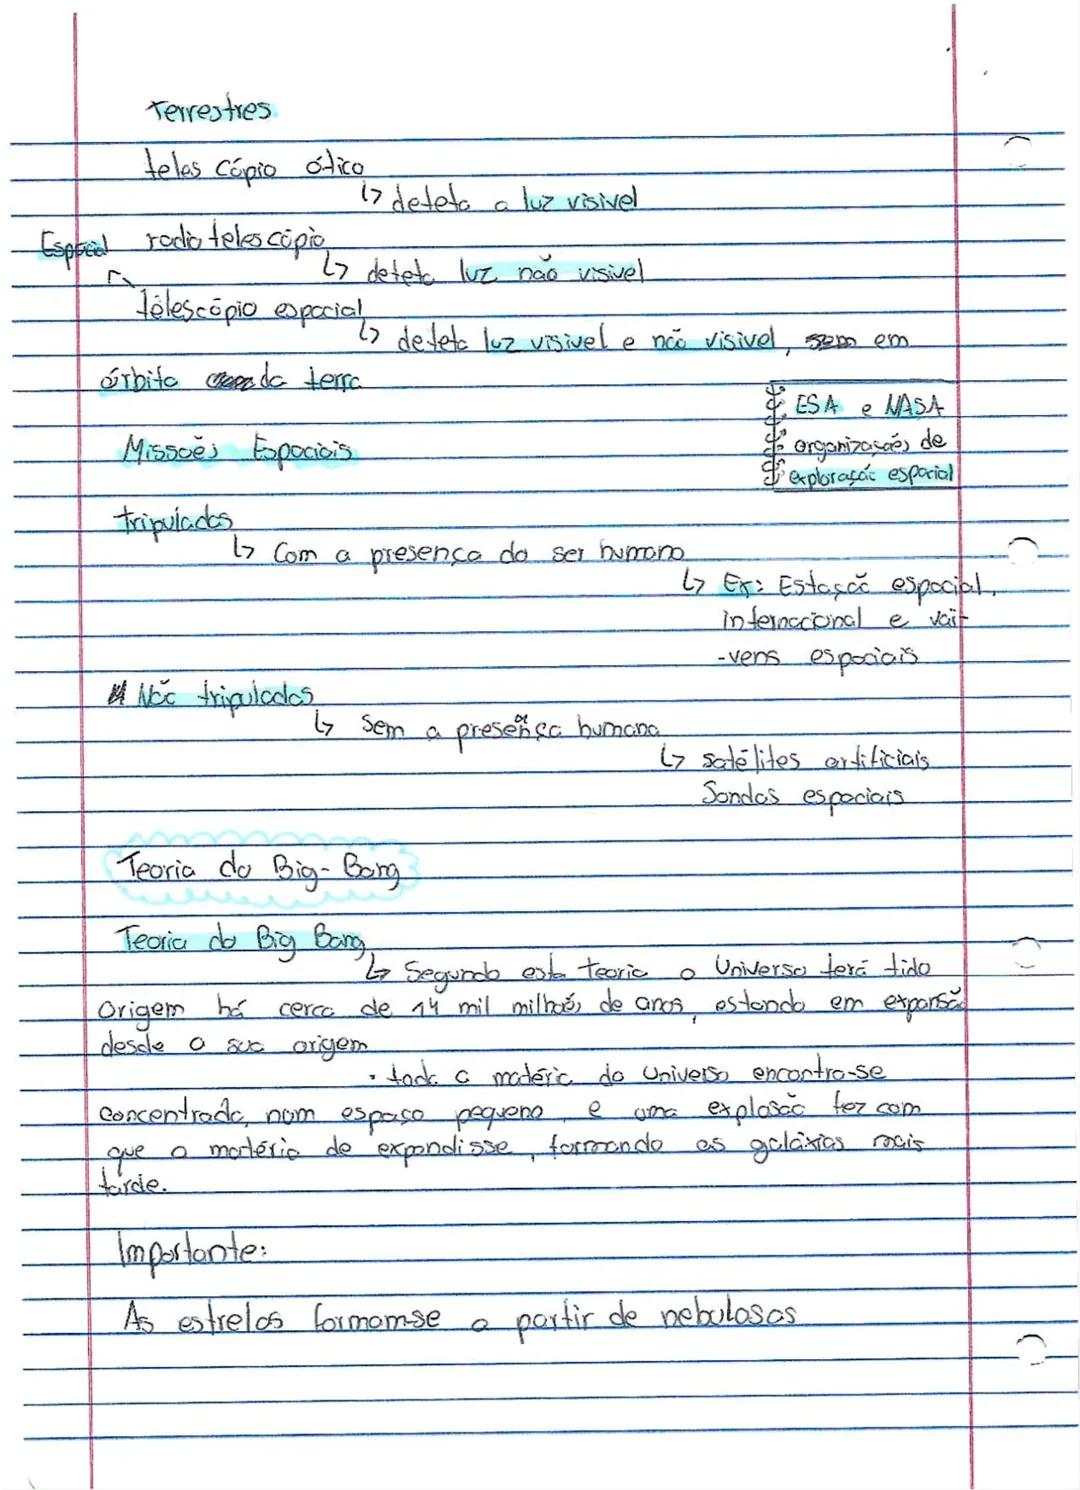 Terrestres
telescópio ótico
↳ deteta a luz visivel
Espacial radiotelescópio
↳ deteta luz não visivel
telescópio espacial
↳ deteta luz visivel e não visivel, em
órbita da terra
ESA e NASA
Missões Espaciais
organizações de
exploração espacial
tripuladas
↳ Com a presença do ser humano
↳ Ex: Estação espacial
internacional e vai-
-vens espaciais
Não tripuladas
↳ Sem a presença humana
↳ satélites artificiais
Sondas espaciais
Teoria do Big-Bang
Teoria do Big Bang
↳ Segundo esta teoria o Universo terá tido
origem há cerca de 14 mil milhões de anos, estando em expansão
desde a sua origem
• toda a matéria do Universo encontra-se
concentrada, num espaço pequeno e uma explosão fez com
que a matéria de expandisse, formando as galáxias mais
tarde.
Importante:
As estrelas formam-se a partir de nebulosas